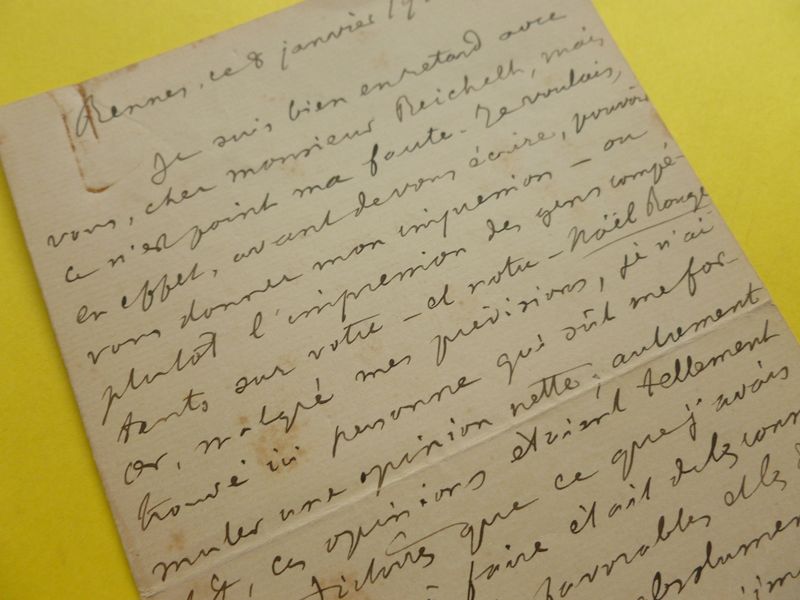 Rennes, ce 8 janvier 19
Je suis bien en retard avec
vous, cher monsieur Reichelt, mais
ce n'est point ma faute. Je voulais,
en effet, avant de vous écrire, pouvoir
vous donner mon impression - ou
plutôt l'impression des gens compé-
tents sur votre - et notre - Noël Rouge
or, malgré mes prévisions, je n'ai
trouvé ici personne qui sût me for-
muler une opinion nette; autrement
dit, ces opinions étaient tellement
que ce que j'avais
à faire était de les
favorables et les
absolument